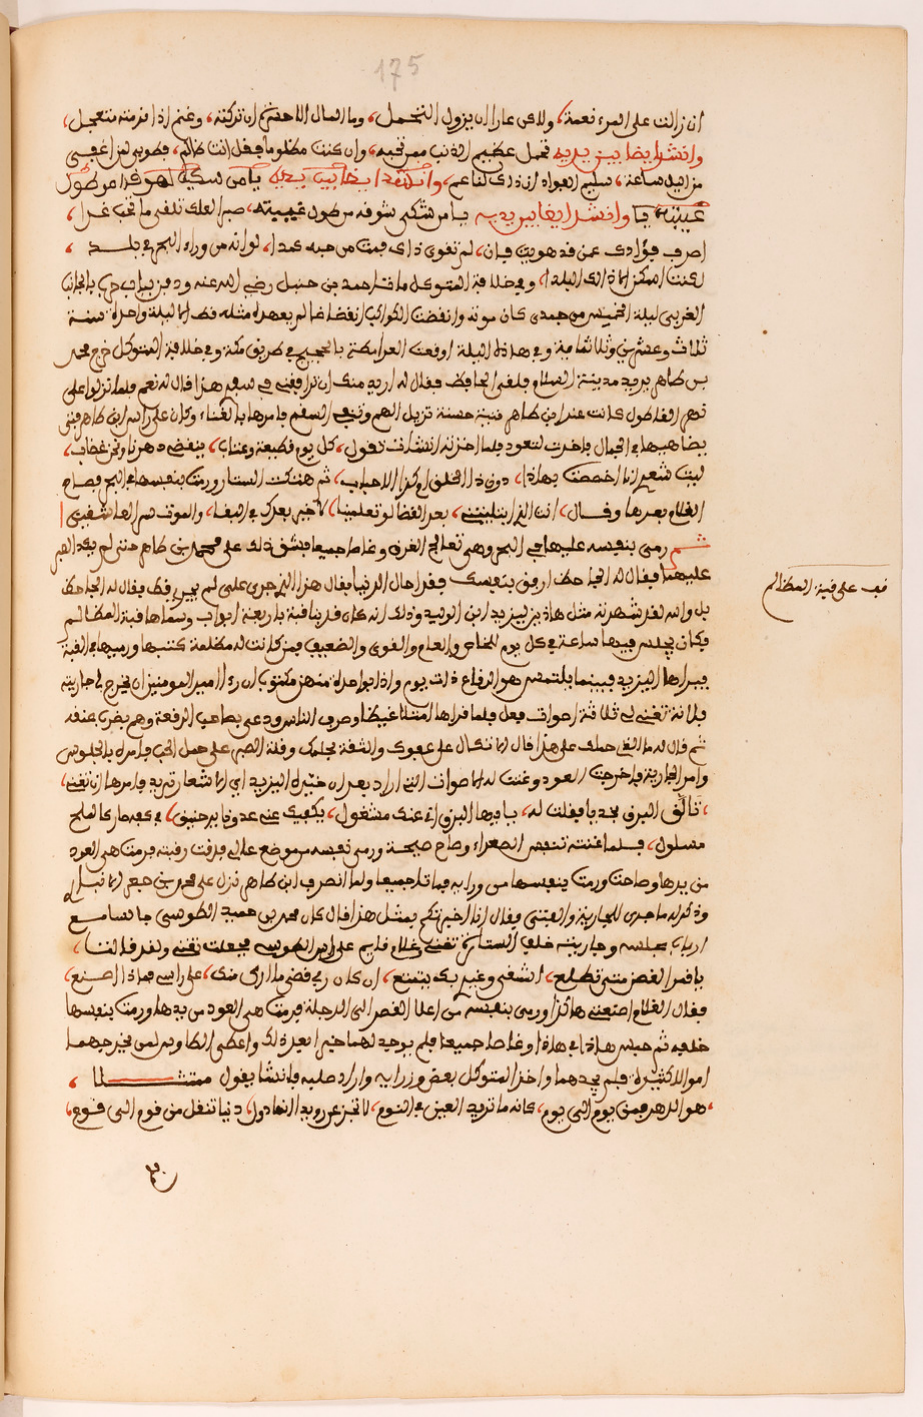 175
ان زالت على المرء نعمة، ولاكن عارا ان يزول التجمل، وما المال الا حسرة ان تركته، وغنم اذا قدمته متعجل،
وانشد ايضا بين يديه تحمل عظيم الذنب ممن تحبه، وان كنت مظلوما فقل انت ظالم، فطوبى لمن اغفى
من الليل ساعة، سليم الفؤاد وانشد ايضا بين يديه يا من شكى من طول
غيبته يا وانشد ايضا بين يديه يا من شكى شوقه من طول غيبته، صبرا لعلك تلقى ما تحب غدا،
اصرف فؤادك عمن قد هويت فان، لم تقوى ذاك فمت من حبه كمدا، لو انه من وراء البحر في بلد،
لكنت اسكن ذاك البلدا، وفي خلافة المتوكل مات احمد بن حنبل رضي الله عنه ودفن بباب حرب بالجانب
الغربي ليلة الخميس من جمدى كان موته وانقضت الكواكب انقضاضا لم يعهد مثله قط الا ليلة واحدة سنة
ثلاث وعشرين وثلاثماية وفي هاذه الليلة اوقعت القرامطة بالحجيج في طريق مكة وفي خلافة المتوكل خرج محمد
بن طاهر يريد مدينة السلام فلقي الجاحظ فقال له اريد منك ان ترافقني في سفري هذا فقال له نعم فلما نزلوا على
نهر القاطول كانت عند ابن طاهر قينة حسنة تزيل الهم وتنفي السقم فامرها بالغناء وكان على راس ابن طاهر فتى
يضاهيها في الجمال فاخذت العود فلما احزته انشات تقول، كل يوم قطيعة وعتاب، ينقضي دهرنا ونحن غضاب،
ليت شعري انا خصصت بهاذا، دون ذا الخلق ام كذا الاحباب، ثم هتكت الستار ورمت بنفسها في البحر فصاح
الغلام بعدها وقال، انت التي ابتليتني، بعد القضا لو تعلمينا، لا خير بعدك في البقا، والموت ستر العاشقين ا
ثم رمى بنفسه عليها في البحر وهي تعالج الغرق وغاطا جميعا فشق ذلك على محمد بن طاهر حتى لم يكد الصبر
عليهما فقال له الجاحظ ارفق بنفسك فقد احال الدنيا فقال هذا الذي جرى على لم يجر قط فقال له الجاحظ
بلى والله لقد شهر نه مثل هاذه يزيد ابن الوليد وذلك انه كان قد بنا قبة باربعة ابواب وسماها قبة المظالم
فكان يجلس فيها ساعة في كل يوم للخاص والعام والقوي والضعيف فمن كانت له مظلمة كتبها ورميها في القبة
فيقراها اليزيد فبينما يلتمس هو الرقاع ذات يوم واذا بواحدة منهن مكتوب ان رءا امير المومنين ان يخرج لي جاريته
فلانة تغني لي ثلاثة اصوات فعل فلما قراها امتلا غيظا وصرف الناس ودعى بصاحب الرقعة وهم بضرب عنقه
ثم قال له ما الذي حملك على هذا قال الاتكال على عفوك والثقة بحلمك وقلة الصبر على حمل الحب فامره بالجلوس
وامر الجارية فاخرجت العود وغنت له الاصوات التي اراد بعد ان خيره اليزيد اي الاشعار تريد فامرها ان تغني،
، تالق البرق نجديا فقلت له، يا ايها البرق اني عنك مشغول، يكفيك عني عدو ثاير حنق، في كفه صارم كالملح
مسلول، فلما غنته تنفس الصعداء وصاح صيحة ورمى نفسه من موضع عال فدقت رقبته فرمت هي العود
من يدها وصاحت ورمت بنفسها من ورايه فماتا جميعا ولما انصرف ابن طاهر نزل على محمد بن جعفر
وذكر له ما جرى للجارية والفتى فقال انا اخبرتكم بمثل هذا قال كان محمد بن حميد الطوسي جالسا مع
اربابه بمجلسه وجاريته خلف الستارة تغني وغلام قايم على راس الطوسي فجعلت تغني ولقد قالت،
يا قمر القصر متى تطلع، اشقى وغيري بك يتمتع، ان كان ربي قضى ما ارى منك، على راسي فماذا اصنع،
فقال الغلام اصنعي هاكذا ورمى بنفسه من اعلا القصر الى الدجلة فرمت هي العود من يدها ورمت بنفسها
خلفه ثم حبس هاذا في هاذه وغاطا جميعا فلم يوجد لهما خبر ابعد ذلك واعطى الطاوسي لمن يخرجهما
اموالا كثيرة فلم يجدهما واخذ المتوكل بعض وزرايه واراد صلبه فانشا يقول متمثلا،
، هو الدهر فمن يوم الى يوم، كانه ما تريد العين في النوم، لا تجزعن رويدا انها دول، دنيا تنقل من قوم الى قوم،
قف على قبة المظالم